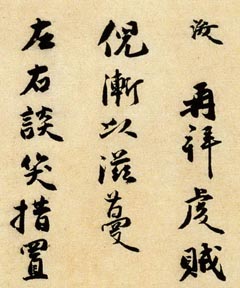 澂 再拜虔賊
倪漸以滋蔓
左右談笑措置